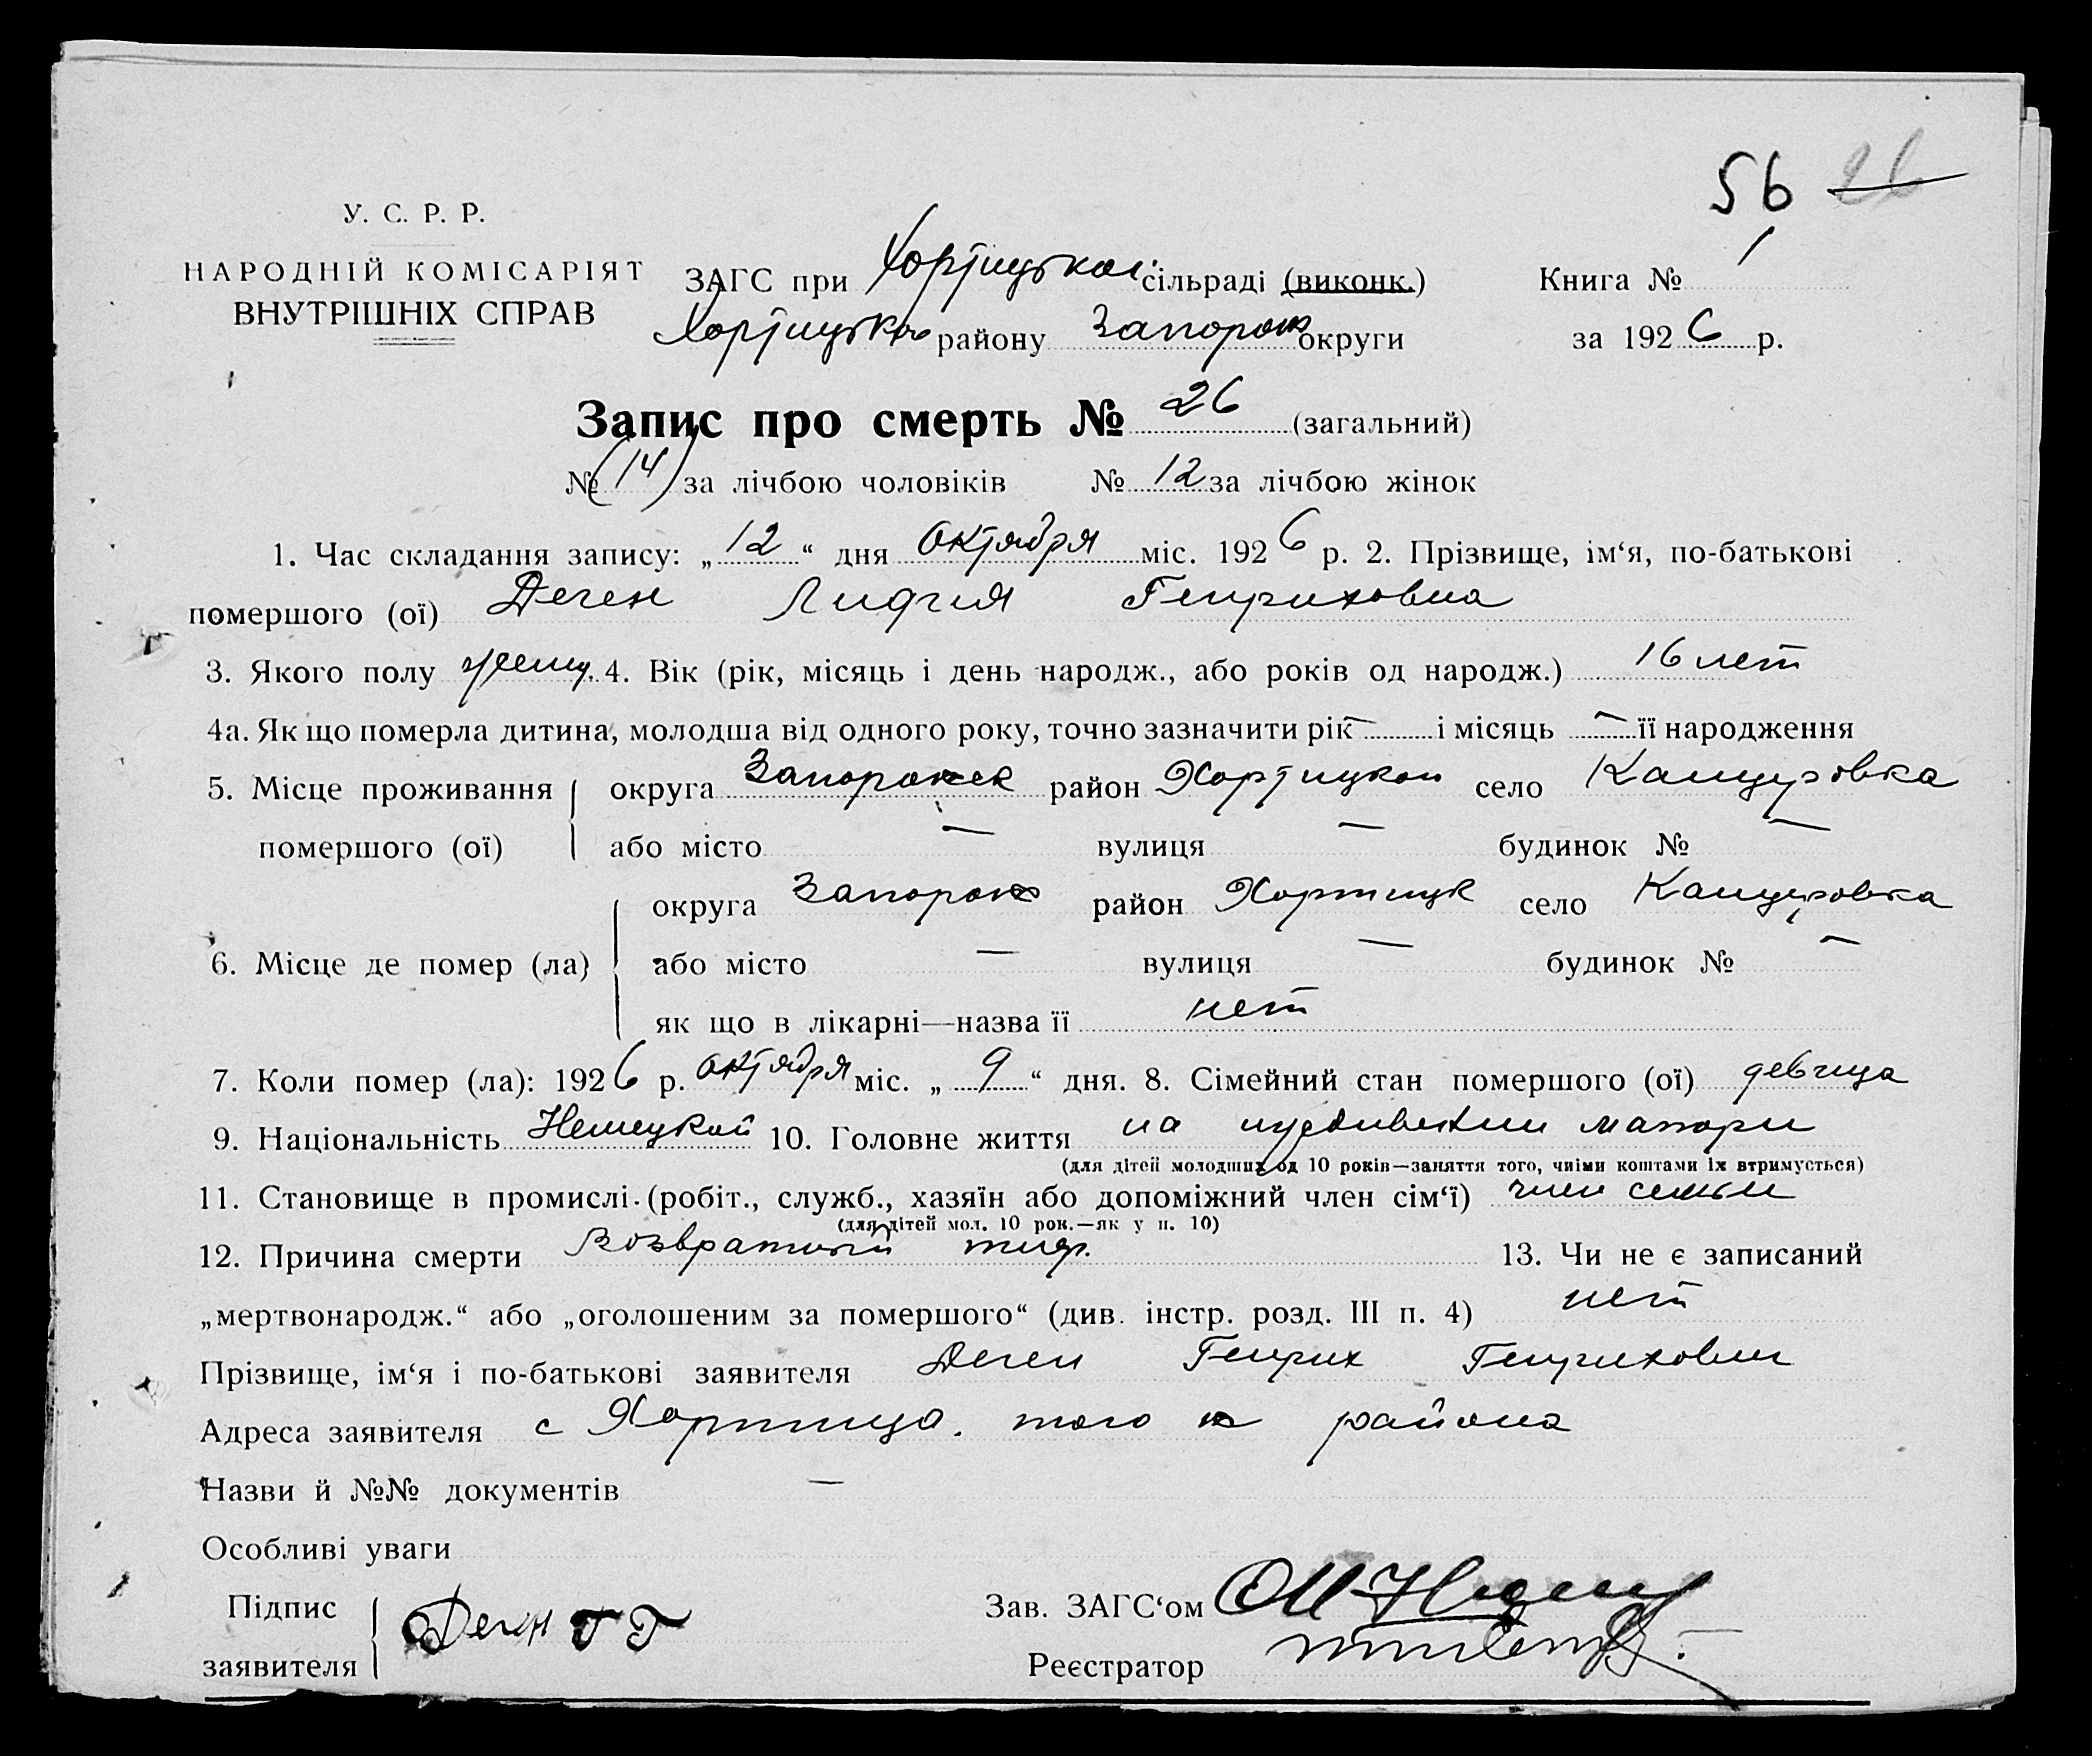 56 26
У. С. Р. Р.
НАРОДНІЙ КОМІСАРІЯТ
ВНУТРІШНІХ СПРАВ
ЗАГС при Хортицькой сільраді (виконк.) Книга № 1
Хортицько району Запорож округи за 1926 р.
Запис про смерть № 26 (загальний)
№ (14) за лічбою чоловіків № 12 за лічбою жінок
1. Час складання запису: „12“ дня Октября міс. 1926 р. 2. Прізвище, ім‘я, по-батькові
помершого (ої) Деген Лидия Генриховна
3. Якого полу женщ. 4. Вік (рік, місяць і день народж., або років од народж.) 16 лет
4а. Як що померла дитина, молодша від одного року, точно зазначити рік — і місяць — її народження
5. Місце проживання округа Запорожск район Хортицкой село Канцеровка
помершого (ої) або місто — вулиця — будинок № —
округа Запорож район Хортицк село Канцеровка
6. Місце де помер (ла) або місто — вулиця — будинок № —
як що в лікарні—назва її нет
7. Коли помер (ла): 1926 р. октября міс. „9“ дня. 8. Сімейний стан помершого (ої) девица
9. Національність Немецкой 10. Головне життя на иждивении матери
(для дітей молодших од 10 років—заняття того, чиїми коштами їх втримується)
11. Становище в промислі (робіт., служб., хазяїн або допоміжний член сім‘ї) член семьи
(для дітей мол. 10 рок.—як у п. 10)
12. Причина смерти Возвратный тиф. 13. Чи не є записаний
„мертвонародж.“ або „оголошеним за помершого“ (див. інстр. розд. III п. 4) нет
Прізвище, ім‘я і по-батькові заявителя Деген Генрих Генрихович
Адреса заявителя с Хортица. того ж района
Назви й №№ документів —
Особливі уваги
Підпис
заявителя Деген Г Г
Зав. ЗАГС‘ом
Реєстратор